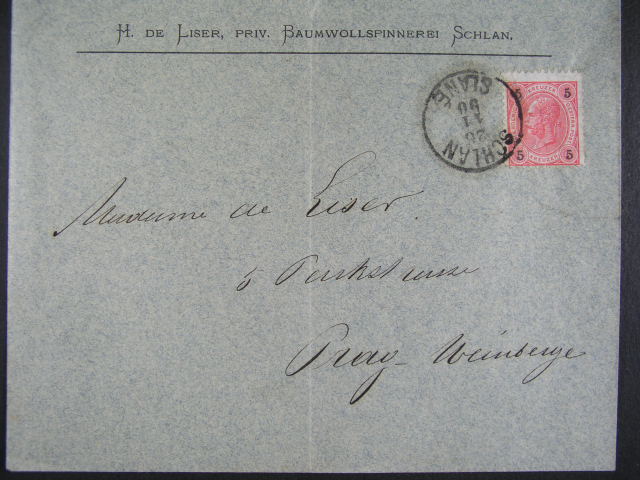 H. DE LISER, PRIV. BAUMWOLLSPINNEREI SCHLAN.
SCHLAN
26
11
90
SLANÉ
5 5
5 5
Madame de Liser
5 Parkstrasse
Prag-Weinberge